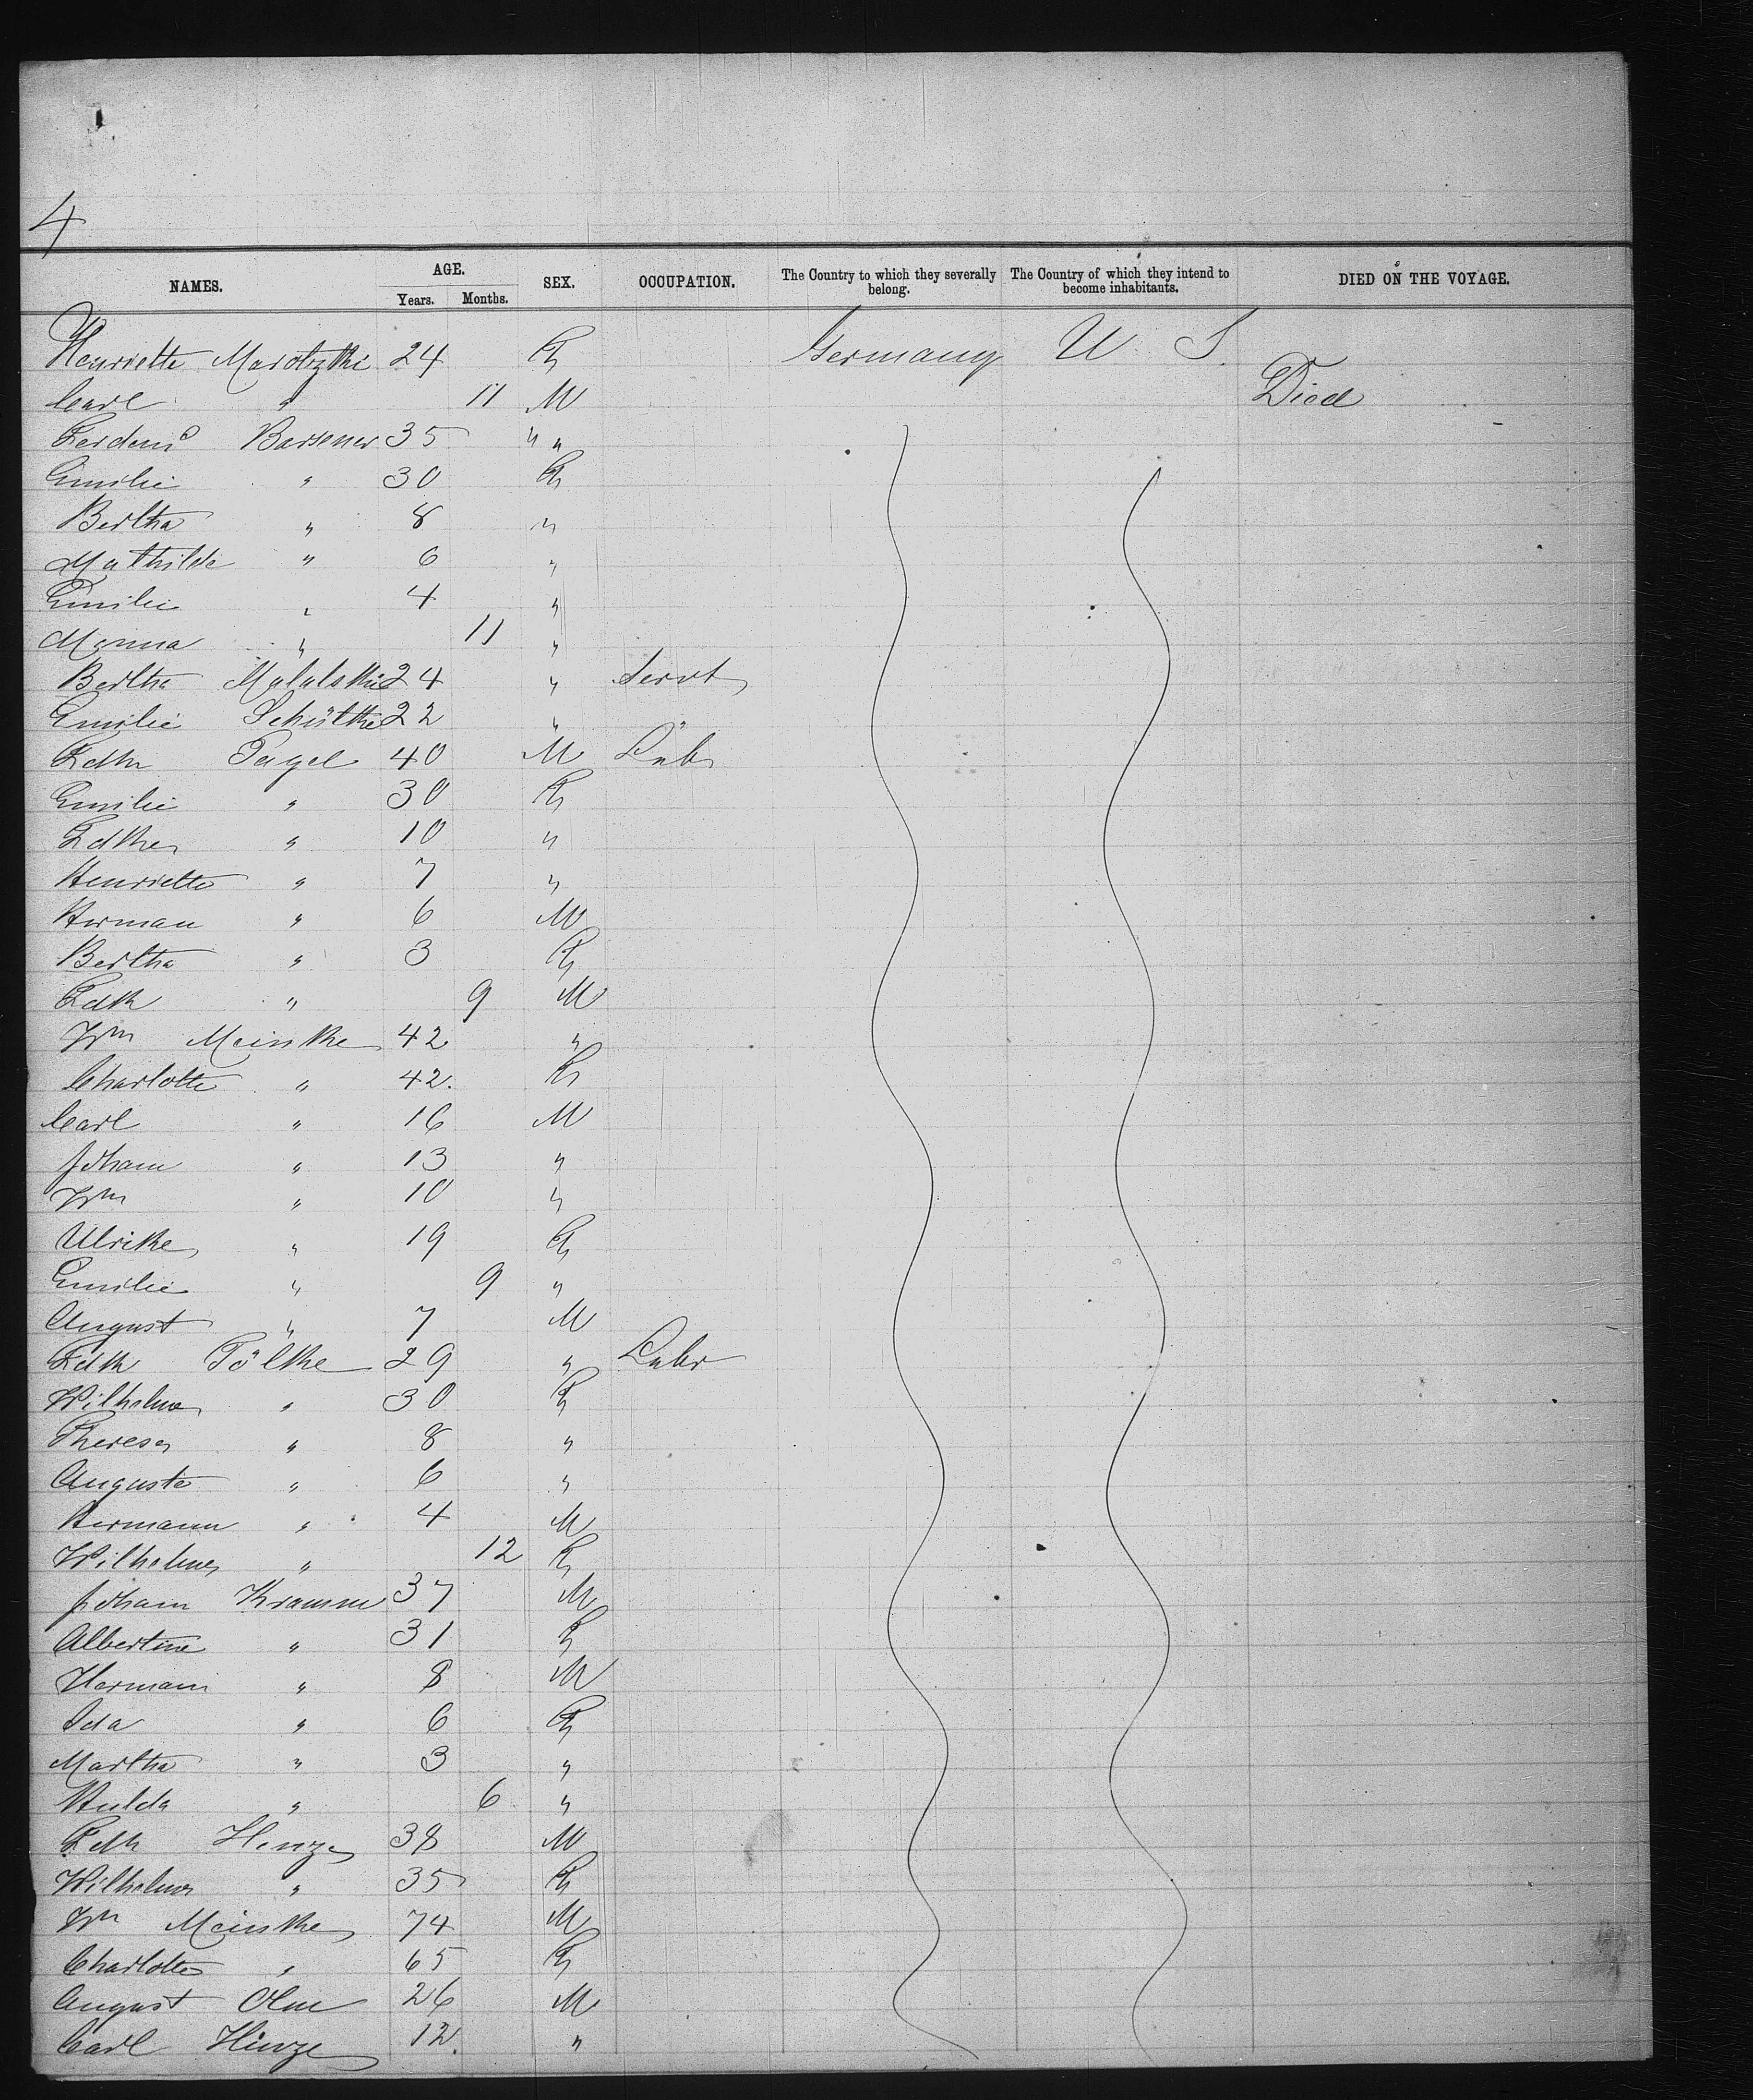 4
NAMES. AGE. Years. Months. SEX. OCCUPATION. The Country to which they severally belong. The Country of which they intend to become inhabitants. DIED ON THE VOYAGE.
Henriette Marotzki 24 F Germany U S
Carl " 11 M Died
Ferdend Barsener 35 " "
Emilie " 30 F
Bertha " 8 "
Mathilde " 6 "
Emilie " 4 "
" 11 "
Bertha 24 " Servt
Emilie Schülke 22 " "
Fdk Pagel 40 M Lab
Emilie " 30 F
Fdke " 10 "
Henriette " 7 "
Herman " 6 M
Bertha " 3 F
Fdk " 9 M
Wm Meinke 42 "
Charlotte " 42. F
Carl " 16 M
Joham " 13 "
Wm " 10 "
Ulrike " 19 F
Emilie " 9 "
August " 7 M
Fdk Pölke 29 " Labr
Wilhelme " 30 F
Therese " 8 "
Auguste " 6 "
Hermann " 4 M
Wilhelme " 12 F
Joham Kramm 37 M
Albertine " 31 F
Hermann " 8 M
Ida " 6 F
Martha " 3 "
Hulda " 6 "
Fdk Hinze 38 M
Wilhelme " 35 F
Wm Meinke 74 M
Charlotte " 65 F
August Olm 26 M
Carl Hinze 12. "